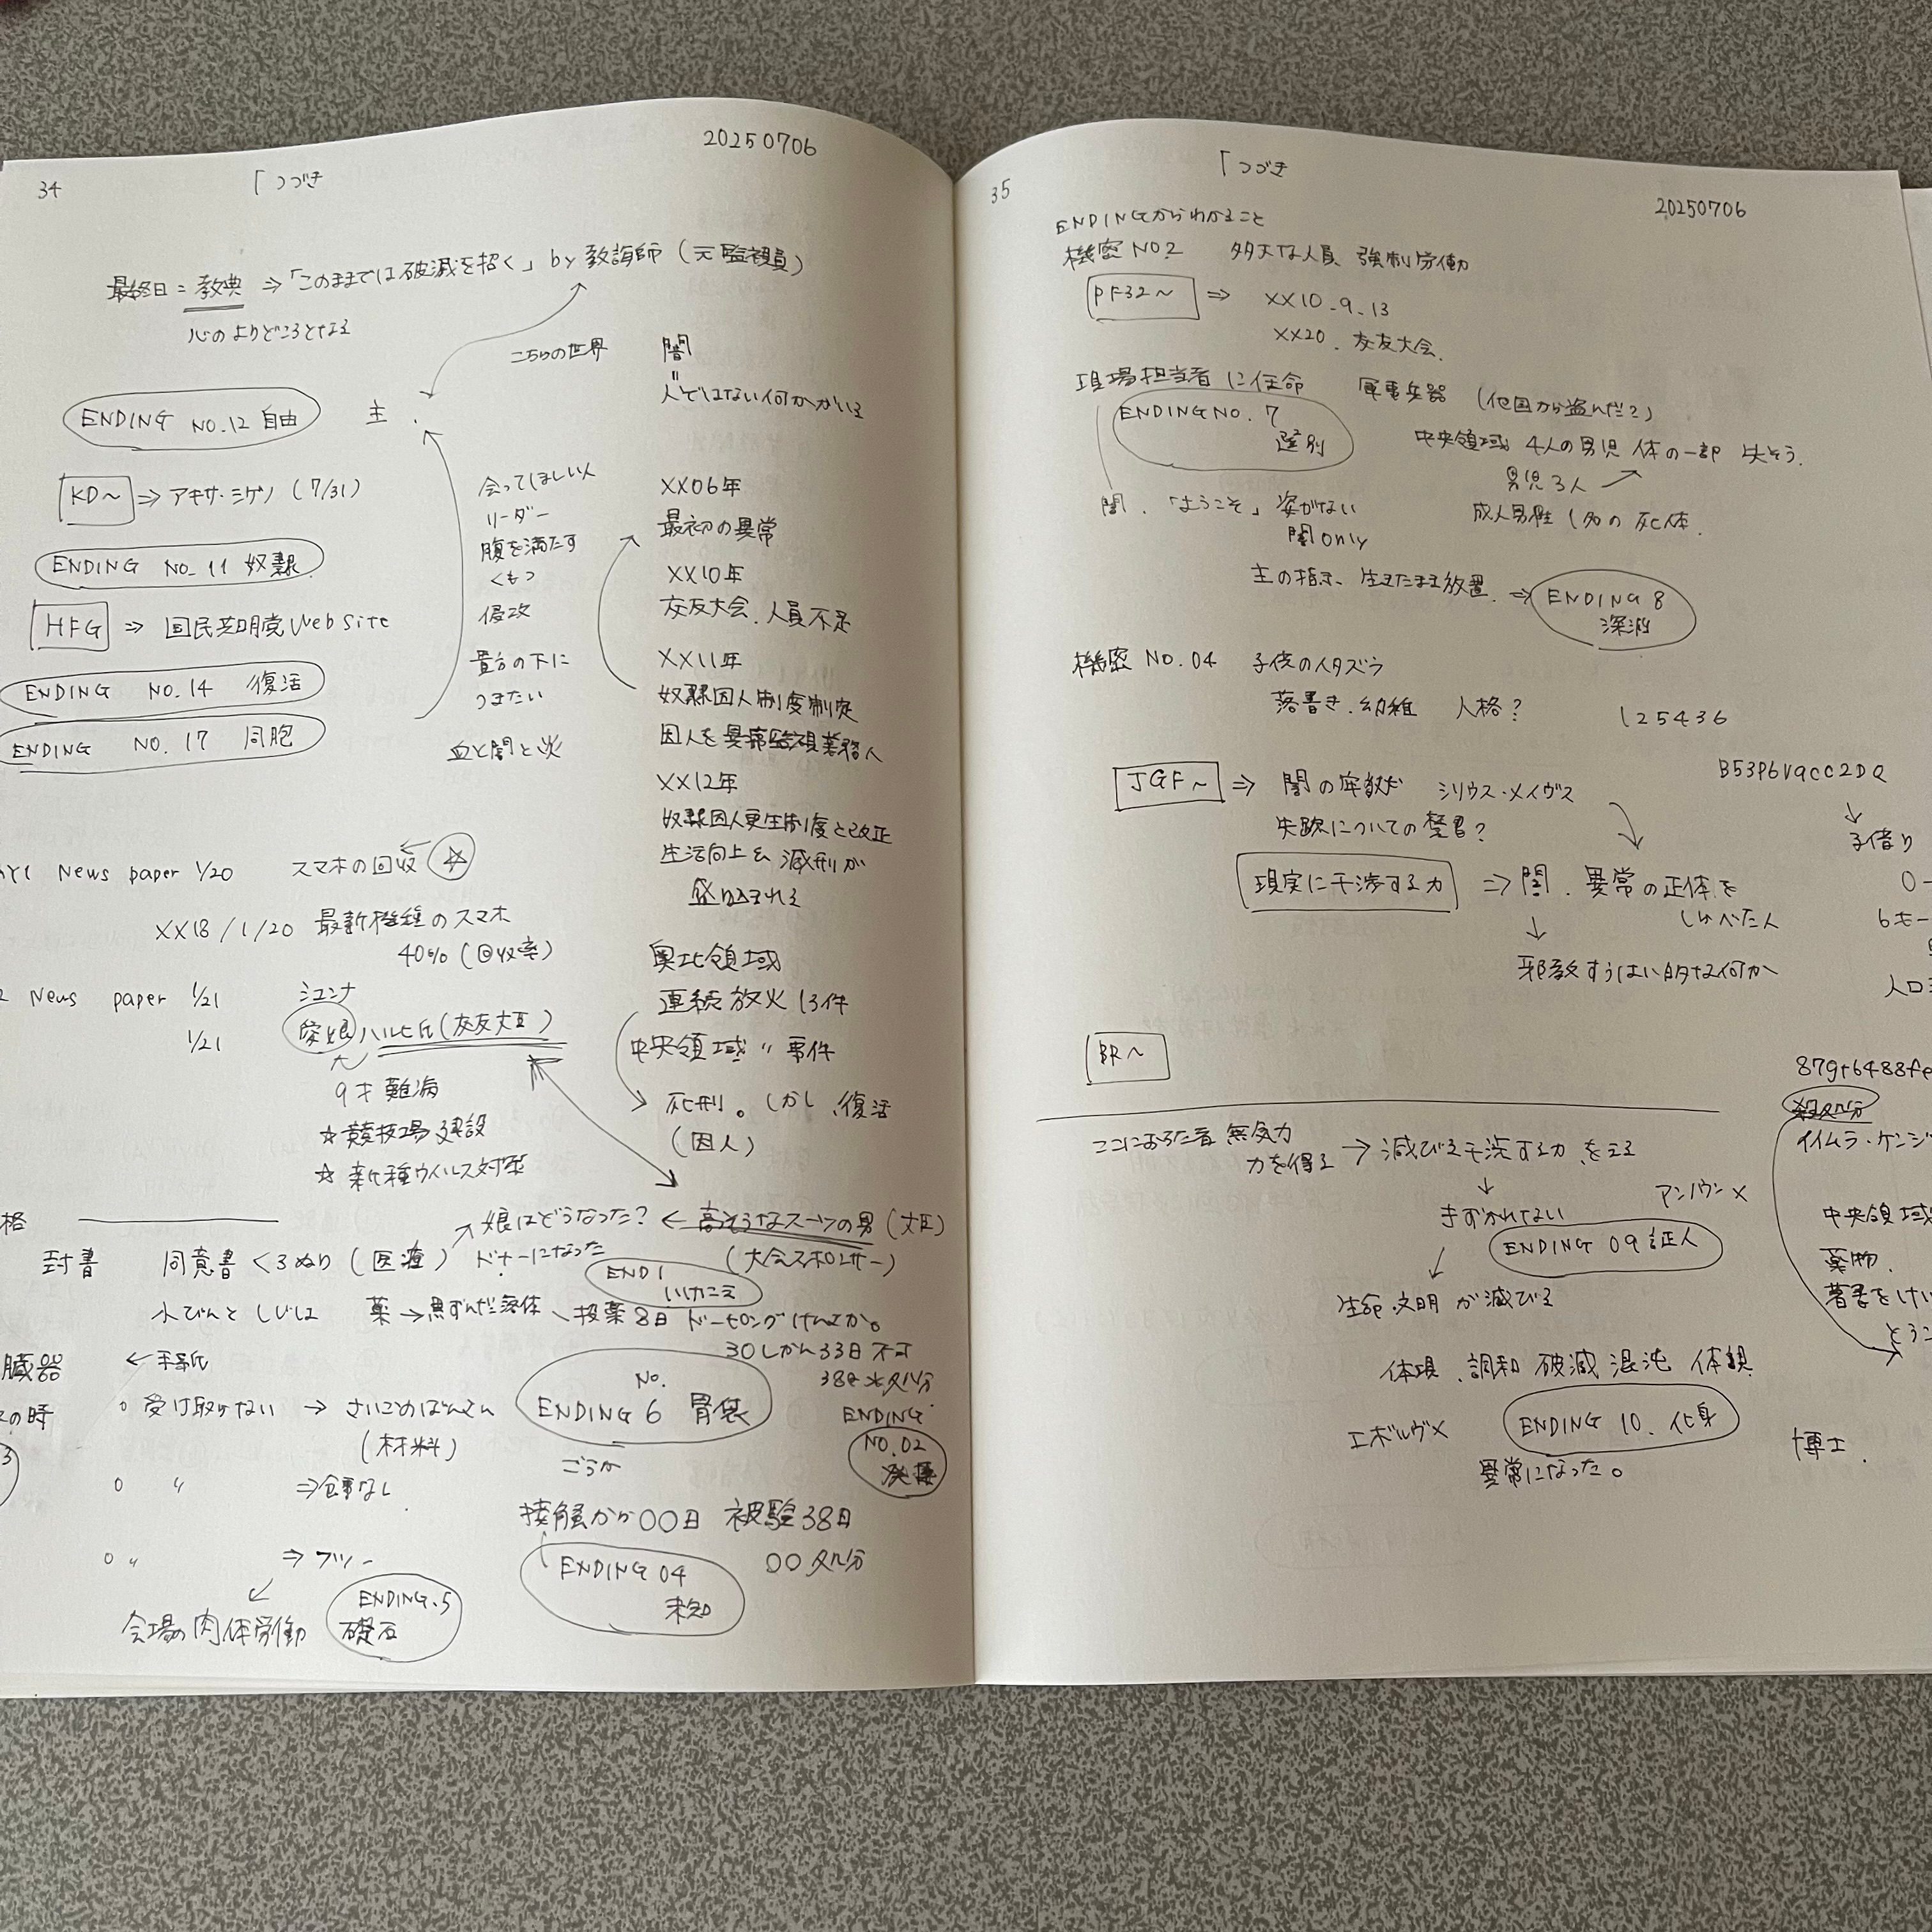 34
「つづき
20250706
最終日=教典 ⇒「このままでは破滅を招く」by 教誨師(元監視員)
心のよりどころとなる
こちらの世界
闇
=
人ではない何かがいる
ENDING NO.12 自由
主.
KD~ ⇒ アキサ・シゲノ (7/31)
ENDING NO.11 奴隷
HFG ⇒ 国民共明党Web Site
ENDING NO.14 復活
ENDING NO.17 同胞
会ってほしい人
リーダー
腹を満たす
くもつ
侵攻
貴方の下に
つきたい
血と闇と炎
XX06年
最初の異常
XX10年
交友大会.人員不足
XX11年
奴隷囚人制度制定
囚人を異常監視業務へ
XX12年
奴隷囚人更生制度と改正
生活向上&減刑が
盛り込まれる
奥北領域
連続放火13件
中央領域〃事件
死刑。しかし、復活
(囚人)
News paper 1/20 スマホの回収 ☆
XX18/1/20 最新機種のスマホ
40%(回収率)
News paper 1/21 シエンナ
1/21 愛娘 ハルヒ氏(交友大臣)
9才難病
☆競技場建設
☆新種ウイルス対策
格
娘はどうなった? ← 高そうなスーツの男(大臣)
封書 同意書くろぬり(医療) ドナーになった (大会スポンサー)
END1
いけにえ
小びんとしじしは 薬→黒ずんだ液体、投薬8日 ドーピングけんさか。
30しかん33日不可
臓器 ←手紙
ENDING No.6 胃袋
ごうか
ENDING
NO.02
の時 ○受け取れない → さいごのばんさん
(材料)
○ 〃 ⇒食事なし
接触から○○日 被験38日
○○処分
ENDING 04
未知
○ 〃 ⇒ フツー
会場の肉体労働
ENDING.5
礎石
35
「つづき
20250706
ENDINGからわかること
機密NO.2 多大な人員 強制労働
PF32~ ⇒ XX10.9.13
XX20.交友大会.
現場担当者に任命 軍事兵器 (他国から盗んだ?)
ENDING NO.7
選別
中央領域 4人の男児 体の一部 失そう.
男児3人
成人男性1名の死体.
闇.「ようこそ」姿がない
闇only
主の指示、生きたまま放置. ⇒ ENDING 8
深淵
機密 No.04 子供のイタズラ
落書き.幼稚 人格? 125436
B53P6V9CC2DQ
JGF~ ⇒ 闇の宗教だ シリウス・メイヴス
失踪についての禁書?
子借り
現実に干渉する力 ⇒ 闇.異常の正体を
しらべた人
0-
6モー
邪教すうはい的な何か
人口
BR~
879r6488fe
イイムラ・ケンジ
ここにおちた者 無気力
力を得る → 滅びる干渉する力をえる
きずかれてない
アンノウン×
ENDING 09 証人
中央領域
薬物.
著書をけい
生命.文明が滅びる
体現.調和 破滅 混沌 体現
エボルヴ× ENDING 10.化身
異常になった。
博士.